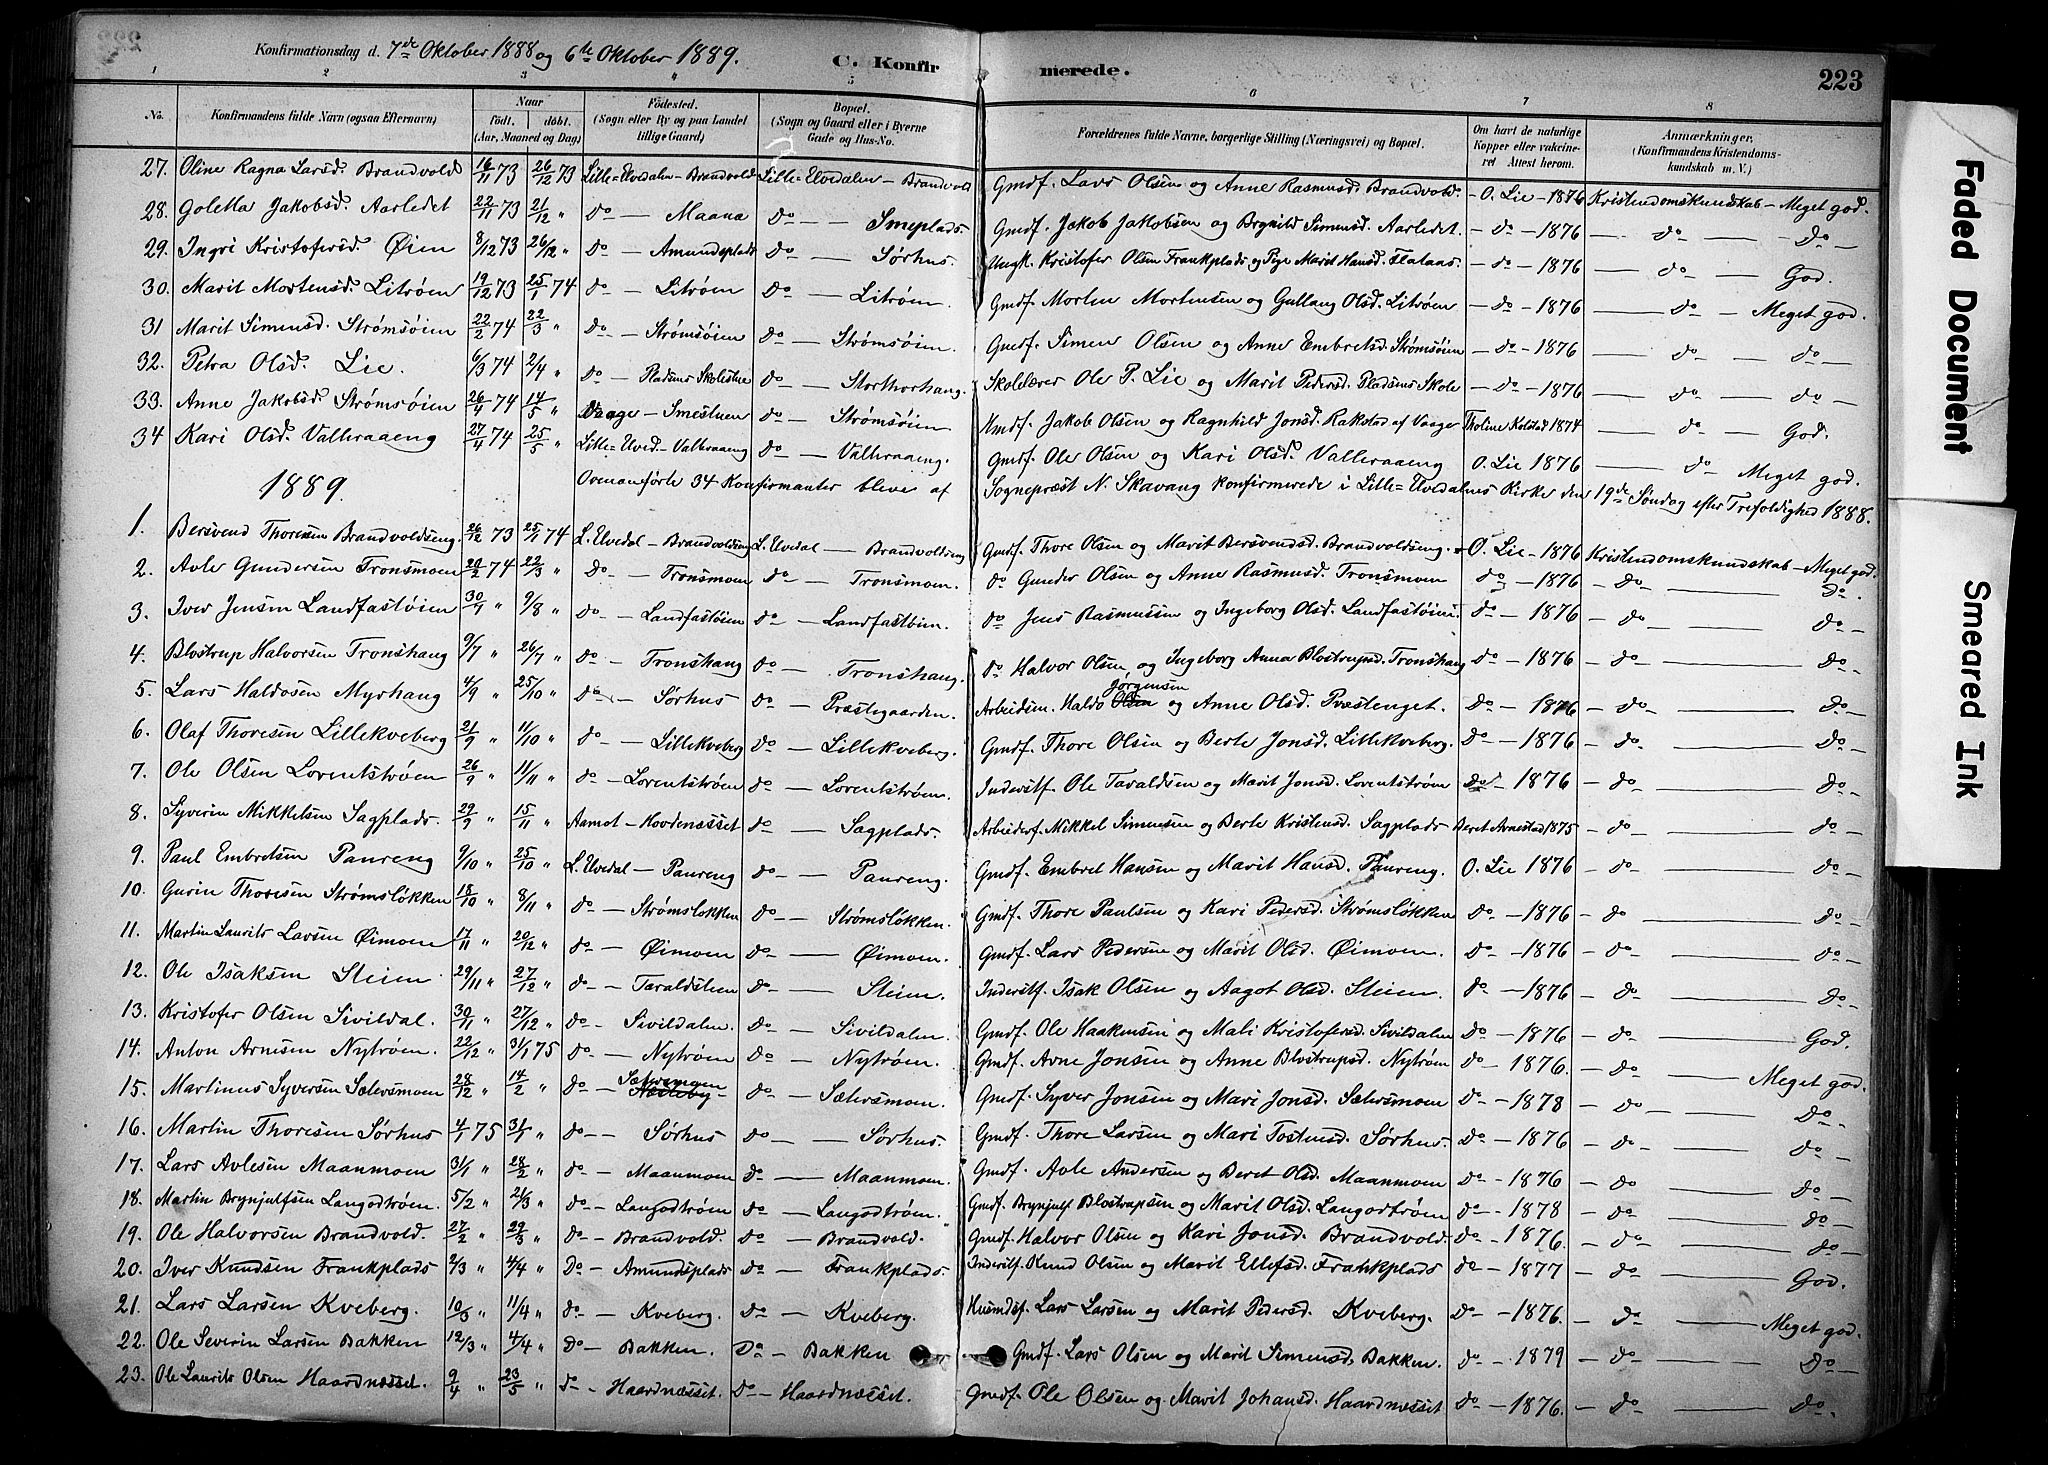 Konfirmationsdag d. 7de Oktober 1888 og 6te Oktober 1889. C. Konfirmerede. 223
1 2 3 4 5 6 7 8
No. Konfirmandens fulde Navn (ogsaa Efternavn) Naar födt. döbt. (Aar, Maaned og Dag) Födested. (Sogn eller By og paa Landet tillige Gaard) Bopæl. (Sogn og Gaard eller i Byerne Gade og Hus-No. Forældrenes fulde Navne, borgerlige Stilling (Næringsvei) og Bopæl. Om havt de naturlige Kopper eller vakcineret Attest herom. Anmærkninger, (Konfirmandens Kristendomskundskab m. V.)
27. Oline Ragna Larsd. Brandvold 16/11 73 26/12 73 Lille-Elvedalen - Brandvold Lille-Elvedalen - Brandvold Gmdf. Lars Olsen og Anne Rasmusd. Brandvold. - O. Lie - 1876 Kristendomskundskab - Meget god.
28. Goletta Jakobsd. Aarledet 22/11 73 21/12 " do - Maana do - Smeplads. Gmdf. Jakob Jakobsen og Brynild Simensd. Aarledet. - do - 1876 - do - do -
29. Ingri Kristofersd. Øien 8/12 73 26/12 " do - Amundsplads do - Sørhus. Ungk. Kristofer Olsen Frankplads og Pige Marit Hansd. Flataas. - do - 1876 - do - God.
30. Marit Mortensd. Litrøen 19/12 73 25/1 74 do - Litrøen do - Litrøen. Gmdf. Morten Mortensen og Gullaug Olsd. Litrøen - do - 1876 - do - Meget god.
31 Marit Simensd. Strømsøien 22/2 74 22/3 " do - Strømsøien do - Strømsøien. Gmdf. Simen Olsen og Anne Embretsd. Strømsøien - do - 1876 - do - do -
32. Petra Olsd. Lie. 6/3 74 2/4 " do - Pladsens Skolestue do - Storthorhaug. Skolelærer Ole P. Lie og Marit Pedersd. Pladsens Skole - do - 1876 - do - do -
33. Anne Jakobsd. Strømsøien 26/4 74 14/5 " Vaage - Smestuen do - Strømsøien Gmdf. Jakob Olsen og Ragnhild Jonsd. Rakstad af Vaage Tholine Kolstad 1874 - do - God.
34 Kari Olsd. Valleraaeng 27/4 74 25/5 " Lille-Elved. - Valleraaeng do - Valleraaeng. Gmdf. Ole Olsen og Kari Olsd. Valleraaeng O. Lie 1876 - do - Meget god.
1889. Ovenanførte 34 Konfirmanter bleve af Sognepræst N. Skavang konfirmerede i Lille-Elvedalens Kirke den 19de Søndag efter Trefoldighed 1888.
1. Bersvend Thoresen Brandvoldseng. 26/12 73 25/1 74 L. Elvedal - Brandvoldseng L. Elvedal - Brandvoldseng Gmdf. Thore Olsen og Marit Bersvendsd. Brandvoldseng. O. Lie - 1876 Kristendomskundskab - Meget god.
2. Avle Gundersen Tronsmoen 20/2 74 22/3 " do - Tronsmoen do - Tronsmoen. do Gunder Olsen og Anne Rasmusd. Tronsmoen do - 1876 - do - do.
3. Iver Jensen Landfastøien 30/1 " 9/8 " do - Landfastøien do - Landfastøien. do Jens Rasmussen og Ingeborg Olsd. Landfastøien do - 1876 - do - do -
4. Blostrup Halvorsen Tronshaug 9/7 " 26/7 " do - Tronshaug do - Tronshaug. do Halvor Olsen og Ingeborg Anna Blostrupsd. Tronshaug do - 1876 - do - do -
5. Lars Haldosen Myrhaug 4/9 " 25/10 " do - Sørhus do - Præstegaarden. Arbeidsm. Haldo Olsen Jørgensen og Anne Olsd. Præstenget. do - 1876 - do - do -
6. Olaf Thoresen Lillekveberg 21/9 " 11/10 " do - Lillekveberg do - Lillekveberg. Gmdf. Thore Olsen og Berte Jonsd. Lillekveberg. do - 1876 - do - do -
7. Ole Olsen Lorentstrøen 26/9 " 11/11 " do - Lorentstrøen do - Lorentstrøen. Inderstf. Ole Taraldsen og Marit Jonsd. Lorentstrøen do - 1876 - do - do -
8. Syverin Mikkelsen Sagplads. 29/9 " 15/11 " Aamot - Hovdenæsset do - Sagplads. Arbeiderf. Mikkel Simensen og Berte Kristensd. Sagplads Beret Arnestad 1875 - do - do -
9. Paul Embretsen Paureng 9/10 " 25/10 " L. Elvedal - Paureng do - Paureng. Gmdf. Embret Hansen og Marit Hansd. Paureng. O. Lie 1876 - do - do -
10. Gurin Thoresen Strømsløkken 18/10 " 8/11 " do - Strømsløkken do - Strømsløkken. Gmdf. Thore Paulsen og Kari Pedersd. Strømsløkken do - 1876 - do - do -
11. Martin Laurits Larsen Øimoen 17/11 " 20/12 " do - Øimoen do - Øimoen. Gmdf. Lars Pedersen og Marit Olsd. Øimoen. do - 1876 - do - do -
12. Ole Isaksen Steien 29/11 " 27/12 " do - Taraldsteen do - Steien. Inderstf. Isak Olsen og Aagot Olsd. Steien. do - 1876 - do - do -
13. Kristofer Olsen Sivildal. 30/11 " 27/12 " do - Sivildalen. do - Sivildalen. Gmdf. Ole Haakensen og Mali Kristofersd. Sivildalen do - 1876 - do - God.
14. Anton Arnesen Nytrøen. 22/12 " 31/1 75 do - Nytrøen do - Nytrøen. Gmdf. Arne Jonsen og Anne Blostrupsd. Nytrøen do - 1876. - do - Meget god.
15. Martinus Syversen Sætersmoen 28/12 " 14/2 " do - Sætersmoen do - Sætersmoen. Gmdf. Syver Jonsen og Mari Jonsd. Sætersmoen do - 1878 - do - do -
16. Martin Thoresen Sørhus 4/1 75 31/1 " do - Sørhus do - Sørhus. Gmdf. Thore Larsen og Mari Tostensd. Sørhus. do - 1876 - do - do -
17. Lars Avlesen Maanmoen 31/1 " 28/2 " do - Maanmoen do - Maanmoen. Gmdf. Avle Andersen og Beret Olsd. Maanmoen do - 1876 - do - do -
18. Martin Brynjulfsen Langodtrøen. 5/2 " 21/3 " do - Langodtrøen do - Langodtrøen. Gmdf. Brynjulf Blostrupsen og Marit Olsd. Langodtrøen do - 1878 - do - do -
19. Ole Halvorsen Brandvold. 27/2 " 29/3 " do - Brandvold. do - Brandvold. Gmdf. Halvor Olsen og Kari Jonsd. Brandvold. do - 1876. - do - do -
20. Iver Knudsen Frankplads 2/3 " 4/4 " do - Amundsplads do - Frankplads. Inderstf. Knud Olsen og Marit Ellefsd. Frankplads do - 1877 - do - God.
21. Lars Larsen Kveberg. 10/3 " 11/4 " do - Kveberg. do - Kveberg. Husmdsf. Lars Larsen og Marit Pedersd. Kveberg. do - 1876. - do - Meget god.
22. Ole Severin Larsen Bakken 12/3 " 4/4 " do - Bakken. do - Bakken Gmdf. Lars Olsen og Marit Simensd. Bakken. do - 1879 - do - do -
23. Ole Laurits Olsen Haardnæsset. 9/4 " 23/5 " do - Haardnæsset. do - Haardnæsset. Gmdf. Ole Olsen og Marit Johansd. Haardnæsset do - 1876. - do - do -
Faded Document
Smeared Ink